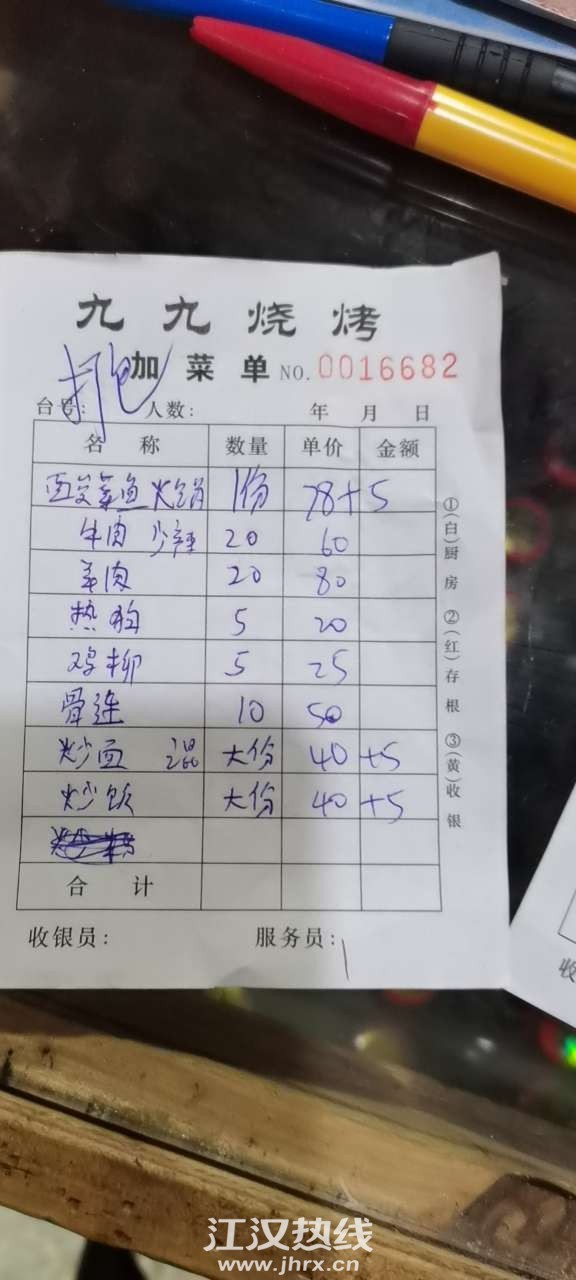 九九烧烤
打包
加菜单 NO. 0016682
台号: 人数: 年 月 日
名称 数量 单价 金额
火锅 1份 78+5
牛肉 少辣 20 60
羊肉 20 80
热狗 5 20
鸡柳 5 25
骨连 10 50
炒面 大份 40 +5
炒饭 大份 40 +5
合计
收银员: 服务员:
①(白)厨房 ②(红)存根 ③(黄)收银
收
江汉热线
www.jhrx.cn